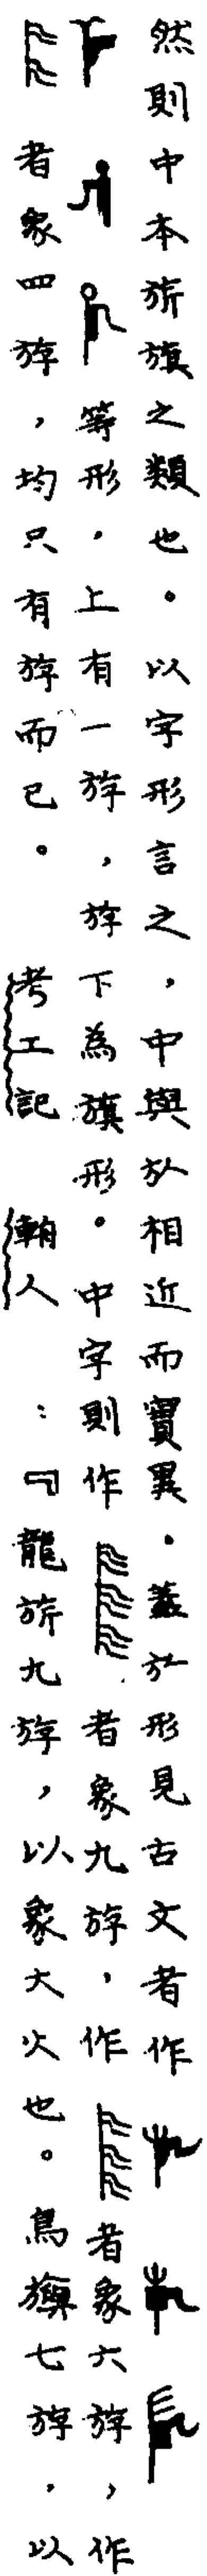 然則中本旂旗之類也。以字形言之，中與㫃相近而實異。蓋㫃形見古文者作
等形，上有一斿，斿下為旗形。中字則作者象九斿，作者象六斿，作
者象四斿，均只有斿而已。考工記輈人：「龍旂九斿，以象大火也。鳥旟七斿，以